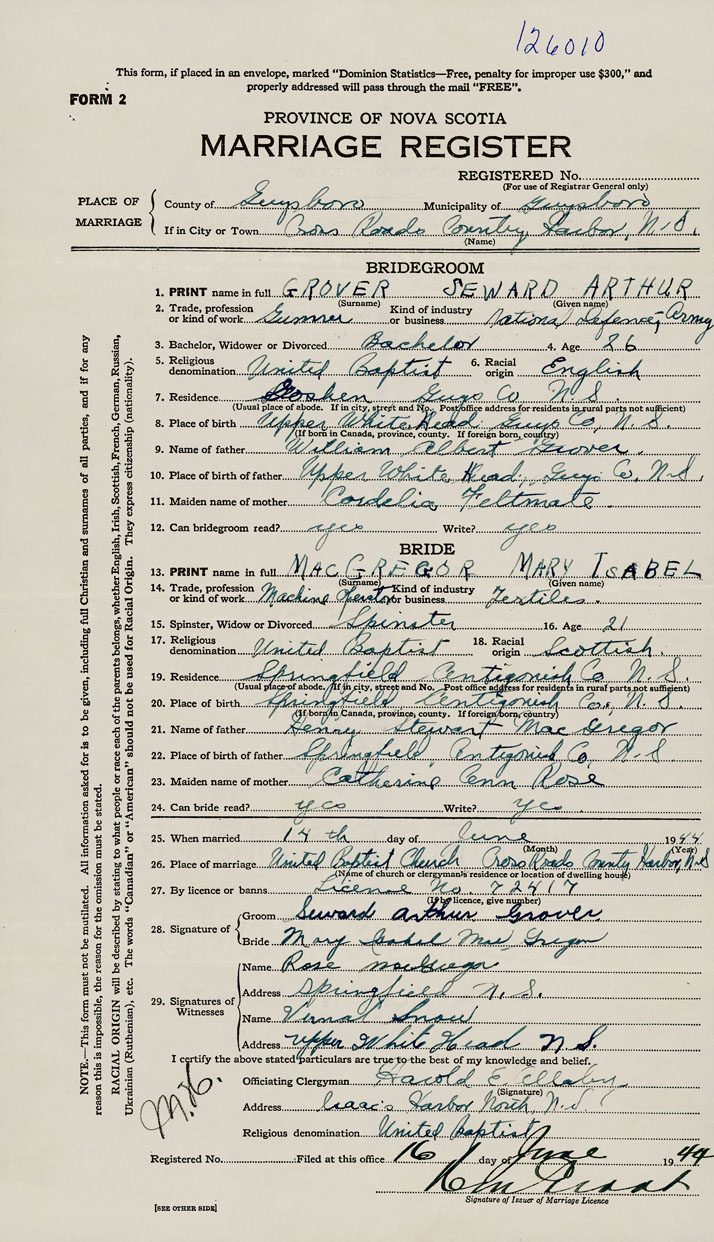 126010
This form, if placed in an envelope, marked "Dominion Statistics—Free, penalty for improper use $300," and
properly addressed will pass through the mail "FREE".
FORM 2
PROVINCE OF NOVA SCOTIA
MARRIAGE REGISTER
REGISTERED No.
(For use of Registrar General only)
PLACE OF MARRIAGE
County of Guysboro Municipality of Guysboro
If in City or Town Cross Roads Country Harbor, N.S.
(Name)
BRIDEGROOM
1. PRINT name in full GROVER SEWARD ARTHUR
(Surname) (Given name)
2. Trade, profession or kind of work Gunner Kind of industry or business National Defence, Army
3. Bachelor, Widower or Divorced Bachelor 4. Age 26
5. Religious denomination United Baptist 6. Racial origin English
7. Residence Goshen Guys Co N.S.
(Usual place of abode. If in city, street and No. Post office address for residents in rural parts not sufficient)
8. Place of birth Upper White Head Guys Co, N.S.
(If born in Canada, province, county. If foreign born, country)
9. Name of father William Albert Grover.
10. Place of birth of father Upper White Head, Guys Co. N.S.
11. Maiden name of mother Cordelia Feltmate.
12. Can bridegroom read? yes Write? yes
BRIDE
13. PRINT name in full MACGREGOR MARY ISABEL
(Surname) (Given name)
14. Trade, profession or kind of work Machine Kind of industry or business Textiles.
15. Spinster, Widow or Divorced Spinster 16. Age 21
17. Religious denomination United Baptist 18. Racial origin Scottish.
19. Residence Springfield Antigonish Co N.S.
(Usual place of abode. If in city, street and No. Post office address for residents in rural parts not sufficient)
20. Place of birth Springfield Antigonish Co., N.S.
(If born in Canada, province, county. If foreign born, country)
21. Name of father Henry Stewart MacGregor
22. Place of birth of father Springfield, Antigonish Co, N.S.
23. Maiden name of mother Catherine Ann Rose
24. Can bride read? yes Write? yes
25. When married 14th day of June 1944
(Month) (Year)
26. Place of marriage United Baptist Church Cross Roads County Harbor, N.S
(Name of church or clergyman's residence or location of dwelling house)
27. By licence or banns License No. 72417
(If by licence, give number)
28. Signature of
Groom Seward Arthur Grover
Bride Mary Isabel MacGregor
29. Signatures of Witnesses
Name Rose MacGregor
Address Springfield N.S.
Name Vernal Snow
Address Upper White Head N.S.
I certify the above stated particulars are true to the best of my knowledge and belief.
Officiating Clergyman Harold E.
(Signature)
Address Isaac's Harbor North, N.S.
Religious denomination United Baptist
Registered No. Filed at this office 16 day of June 1944
Signature of Issuer of Marriage Licence
[SEE OTHER SIDE]
NOTE.—This form must not be mutilated. All information asked for is to be given, including full Christian and surnames of all parties, and if for any
reason this is impossible, the reason for the omission must be stated.
RACIAL ORIGIN will be described by stating to what people or race each of the parents belongs, whether English, Irish, Scottish, French, German, Russian,
Ukrainian (Ruthenian), etc. The words "Canadian" or "American" should not be used for Racial Origin. They express citizenship (nationality).